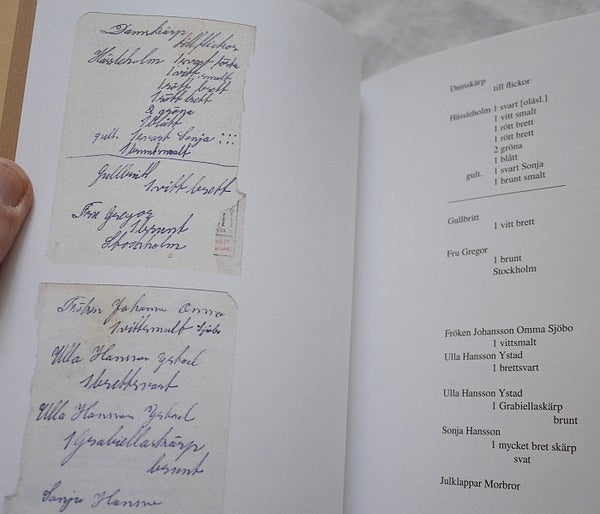 Damskärp
till flickor
Hässleholm 1 svart
1 vitt smalt
1 rött brett
1 rött brett
2 gröna
1 blått
gult. 1 svart Sonja
1 brunt smalt
Gullbritt
1 vitt brett
Fru Gregor
1 brunt
Stockholm
Fröken Johanns Omma
1 vittsmalt Sjöbo
Ulla Hansson Ystad
1 brettsvart
Ulla Hansson Ystad
1 Grabiellaskärp
brunt
Sonja Hansso
Damskärp till flickor
Hässleholm 1 svart [oläsl.]
1 vitt smalt
1 rött brett
1 rött brett
2 gröna
1 blått
gult. 1 svart Sonja
1 brunt smalt
Gullbritt
1 vitt brett
Fru Gregor
1 brunt
Stockholm
Fröken Johansson Omma Sjöbo
1 vittsmalt
Ulla Hansson Ystad
1 brettsvart
Ulla Hansson Ystad
1 Grabiellaskärp
brunt
Sonja Hansson
1 mycket bret skärp
svat
Julklappar Morbror